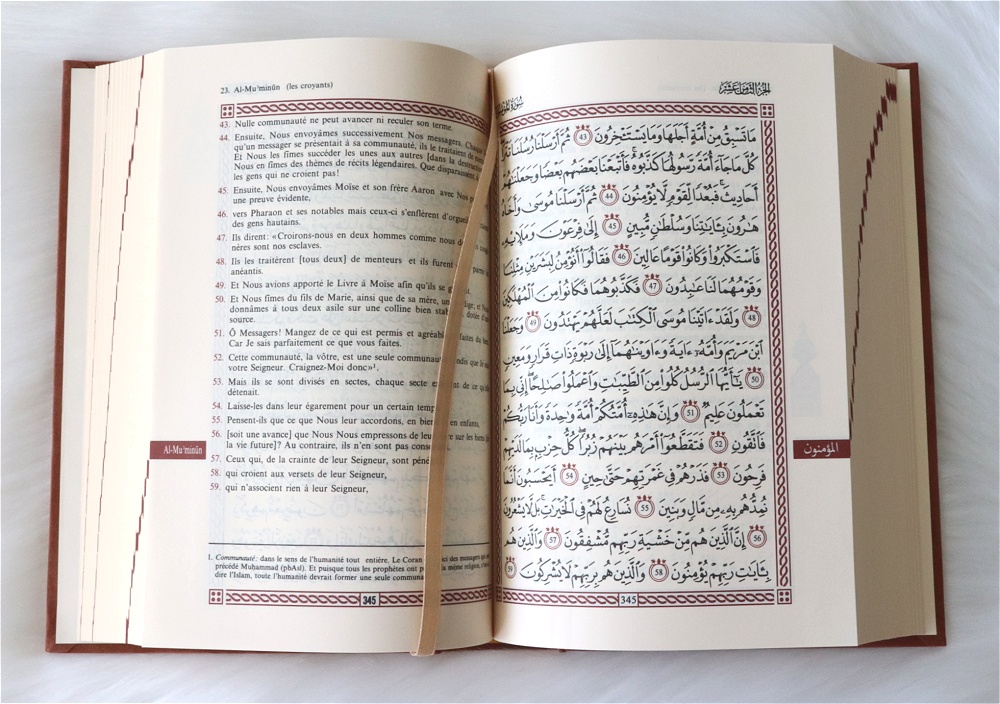 23. Al-Mu'minūn (les croyants)
43. Nulle communauté ne peut avancer ni reculer son terme.
44. Ensuite, Nous envoyâmes successivement Nos messagers. Chaque
qu'un messager se présentait à sa communauté, ils le traitaient de
Et Nous les fîmes succéder les uns aux autres [dans la
Nous en fîmes des thèmes de récits légendaires. Que disparaissent
les gens qui ne croient pas!
45. Ensuite, Nous envoyâmes Moïse et son frère Aaron avec Nos
une preuve évidente,
46. vers Pharaon et ses notables mais ceux-ci s'enflèrent d'orgueil
des gens hautains.
47. Ils dirent: «Croirons-nous en deux hommes comme nous
nères sont nos esclaves.
48. Ils les traitèrent [tous deux] de menteurs et ils furent parmi
anéantis.
49. Et Nous avions apporté le Livre à Moïse afin qu'ils se
50. Et Nous fîmes du fils de Marie, ainsi que de sa mère, un
donnâmes à tous deux asile sur une colline bien dotée d'une
source.
51. Ô Messagers! Mangez de ce qui est permis et agréable faites du
Car Je sais parfaitement ce que vous faites.
52. Cette communauté, la vôtre, est une seule que Je suis
votre Seigneur. Craignez-Moi donc»¹.
53. Mais ils se sont divisés en sectes, chaque secte de ce
détenait.
54. Laisse-les dans leur égarement pour un certain
55. Pensent-ils que ce que Nous leur accordons, en enfants,
56. [soit une avance] que Nous Nous empressons de sur les
la vie future]? Au contraire, ils n'en sont pas
57. Ceux qui, de la crainte de leur Seigneur, sont
58. qui croient aux versets de leur Seigneur,
59. qui n'associent rien à leur Seigneur,
Al-Mu'minūn
1. Communauté: dans le sens de l'humanité tout entière. Le Coran ici des messagers qui
précédé Muḥammad (pbAsl). Et puisque tous les prophètes ont la même religion,
dire l'Islam, toute l'humanité devrait former une seule
345
الجزء الثامن عشر
سورة
مَا تَسْبِقُ مِنْ أُمَّةٍ أَجَلَهَا وَمَا يَسْتَـْٔخِرُونَ ٤٣ ثُمَّ أَرْسَلْنَا رُسُلَنَا تَتْرَا
كُلَّ مَا جَآءَ أُمَّةً رَّسُولُهَا كَذَّبُوهُ فَأَتْبَعْنَا بَعْضَهُم بَعْضًا وَجَعَلْنَٰهُمْ
أَحَادِيثَ فَبُعْدًا لِّقَوْمٍ لَّا يُؤْمِنُونَ ٤٤ ثُمَّ أَرْسَلْنَا مُوسَىٰ وَأَخَاهُ
هَٰرُونَ بِـَٔايَٰتِنَا وَسُلْطَٰنٍ مُّبِينٍ ٤٥ إِلَىٰ فِرْعَوْنَ وَمَلَإِيْهِۦ
فَٱسْتَكْبَرُوا۟ وَكَانُوا۟ قَوْمًا عَالِينَ ٤٦ فَقَالُوٓا۟ أَنُؤْمِنُ لِبَشَرَيْنِ مِثْلِنَا
وَقَوْمُهُمَا لَنَا عَٰبِدُونَ ٤٧ فَكَذَّبُوهُمَا فَكَانُوا۟ مِنَ ٱلْمُهْلَكِينَ
٤٨ وَلَقَدْ ءَاتَيْنَا مُوسَى ٱلْكِتَٰبَ لَعَلَّهُمْ يَهْتَدُونَ ٤٩ وَجَعَلْنَا
ٱبْنَ مَرْيَمَ وَأُمَّهُۥٓ ءَايَةً وَءَاوَيْنَٰهُمَآ إِلَىٰ رَبْوَةٍ ذَاتِ قَرَارٍ وَمَعِينٍ
٥٠ يَٰٓأَيُّهَا ٱلرُّسُلُ كُلُوا۟ مِنَ ٱلطَّيِّبَٰتِ وَٱعْمَلُوا۟ صَٰلِحًا إِنِّى بِمَا
تَعْمَلُونَ عَلِيمٌ ٥١ وَإِنَّ هَٰذِهِۦٓ أُمَّتُكُمْ أُمَّةً وَٰحِدَةً وَأَنَا۠ رَبُّكُمْ
فَٱتَّقُونِ ٥٢ فَتَقَطَّعُوٓا۟ أَمْرَهُم بَيْنَهُمْ زُبُرًا كُلُّ حِزْبٍۭ بِمَا لَدَيْهِمْ
فَرِحُونَ ٥٣ فَذَرْهُمْ فِى غَمْرَتِهِمْ حَتَّىٰ حِينٍ ٥٤ أَيَحْسَبُونَ أَنَّمَا
نُمِدُّهُم بِهِۦ مِن مَّالٍ وَبَنِينَ ٥٥ نُسَارِعُ لَهُمْ فِى ٱلْخَيْرَٰتِ بَل لَّا يَشْعُرُونَ
٥٦ إِنَّ ٱلَّذِينَ هُم مِّنْ خَشْيَةِ رَبِّهِم مُّشْفِقُونَ ٥٧ وَٱلَّذِينَ هُم
بِـَٔايَٰتِ رَبِّهِمْ يُؤْمِنُونَ ٥٨ وَٱلَّذِينَ هُم بِرَبِّهِمْ لَا يُشْرِكُونَ ٥٩
المؤمنون
345